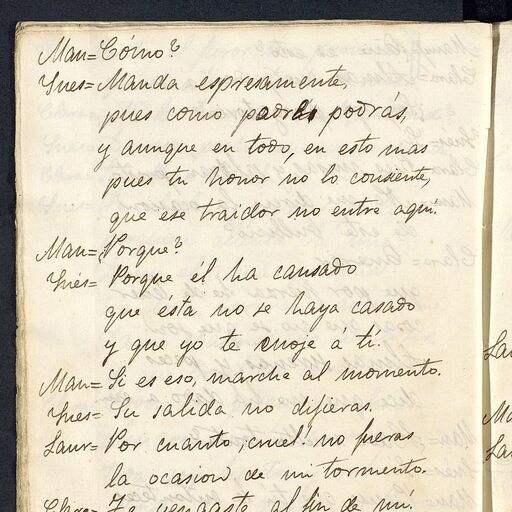 Man= Cómo?
Ynes= Manda espresamente,
pues como padre podrás,
y aunque en todo, en esto mas
pues tu honor no lo consiente,
que ese traidor no entre aquí.
Man= Porque?
Ynés= Porque él ha causado
que ésta no se haya casado
y que yo te enoje á tí.
Man= Si es eso, marche al momento.
Ynes= Su salida no difieras.
Laur= Por cuanto, cruel! no fueras
la ocasion de mi tormento.
Te vengaste al fin de mí.
Lau
Ma
Lau